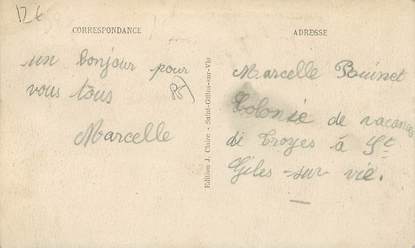 12 €
CORRESPONDANCE
un bonjour pour
vous tous
Marcelle
Edition J. Claire - Saint-Gilles-sur-Vie
ADRESSE
Marcelle
Colonie de vacances
de Troyes à St
Giles-sur vie.